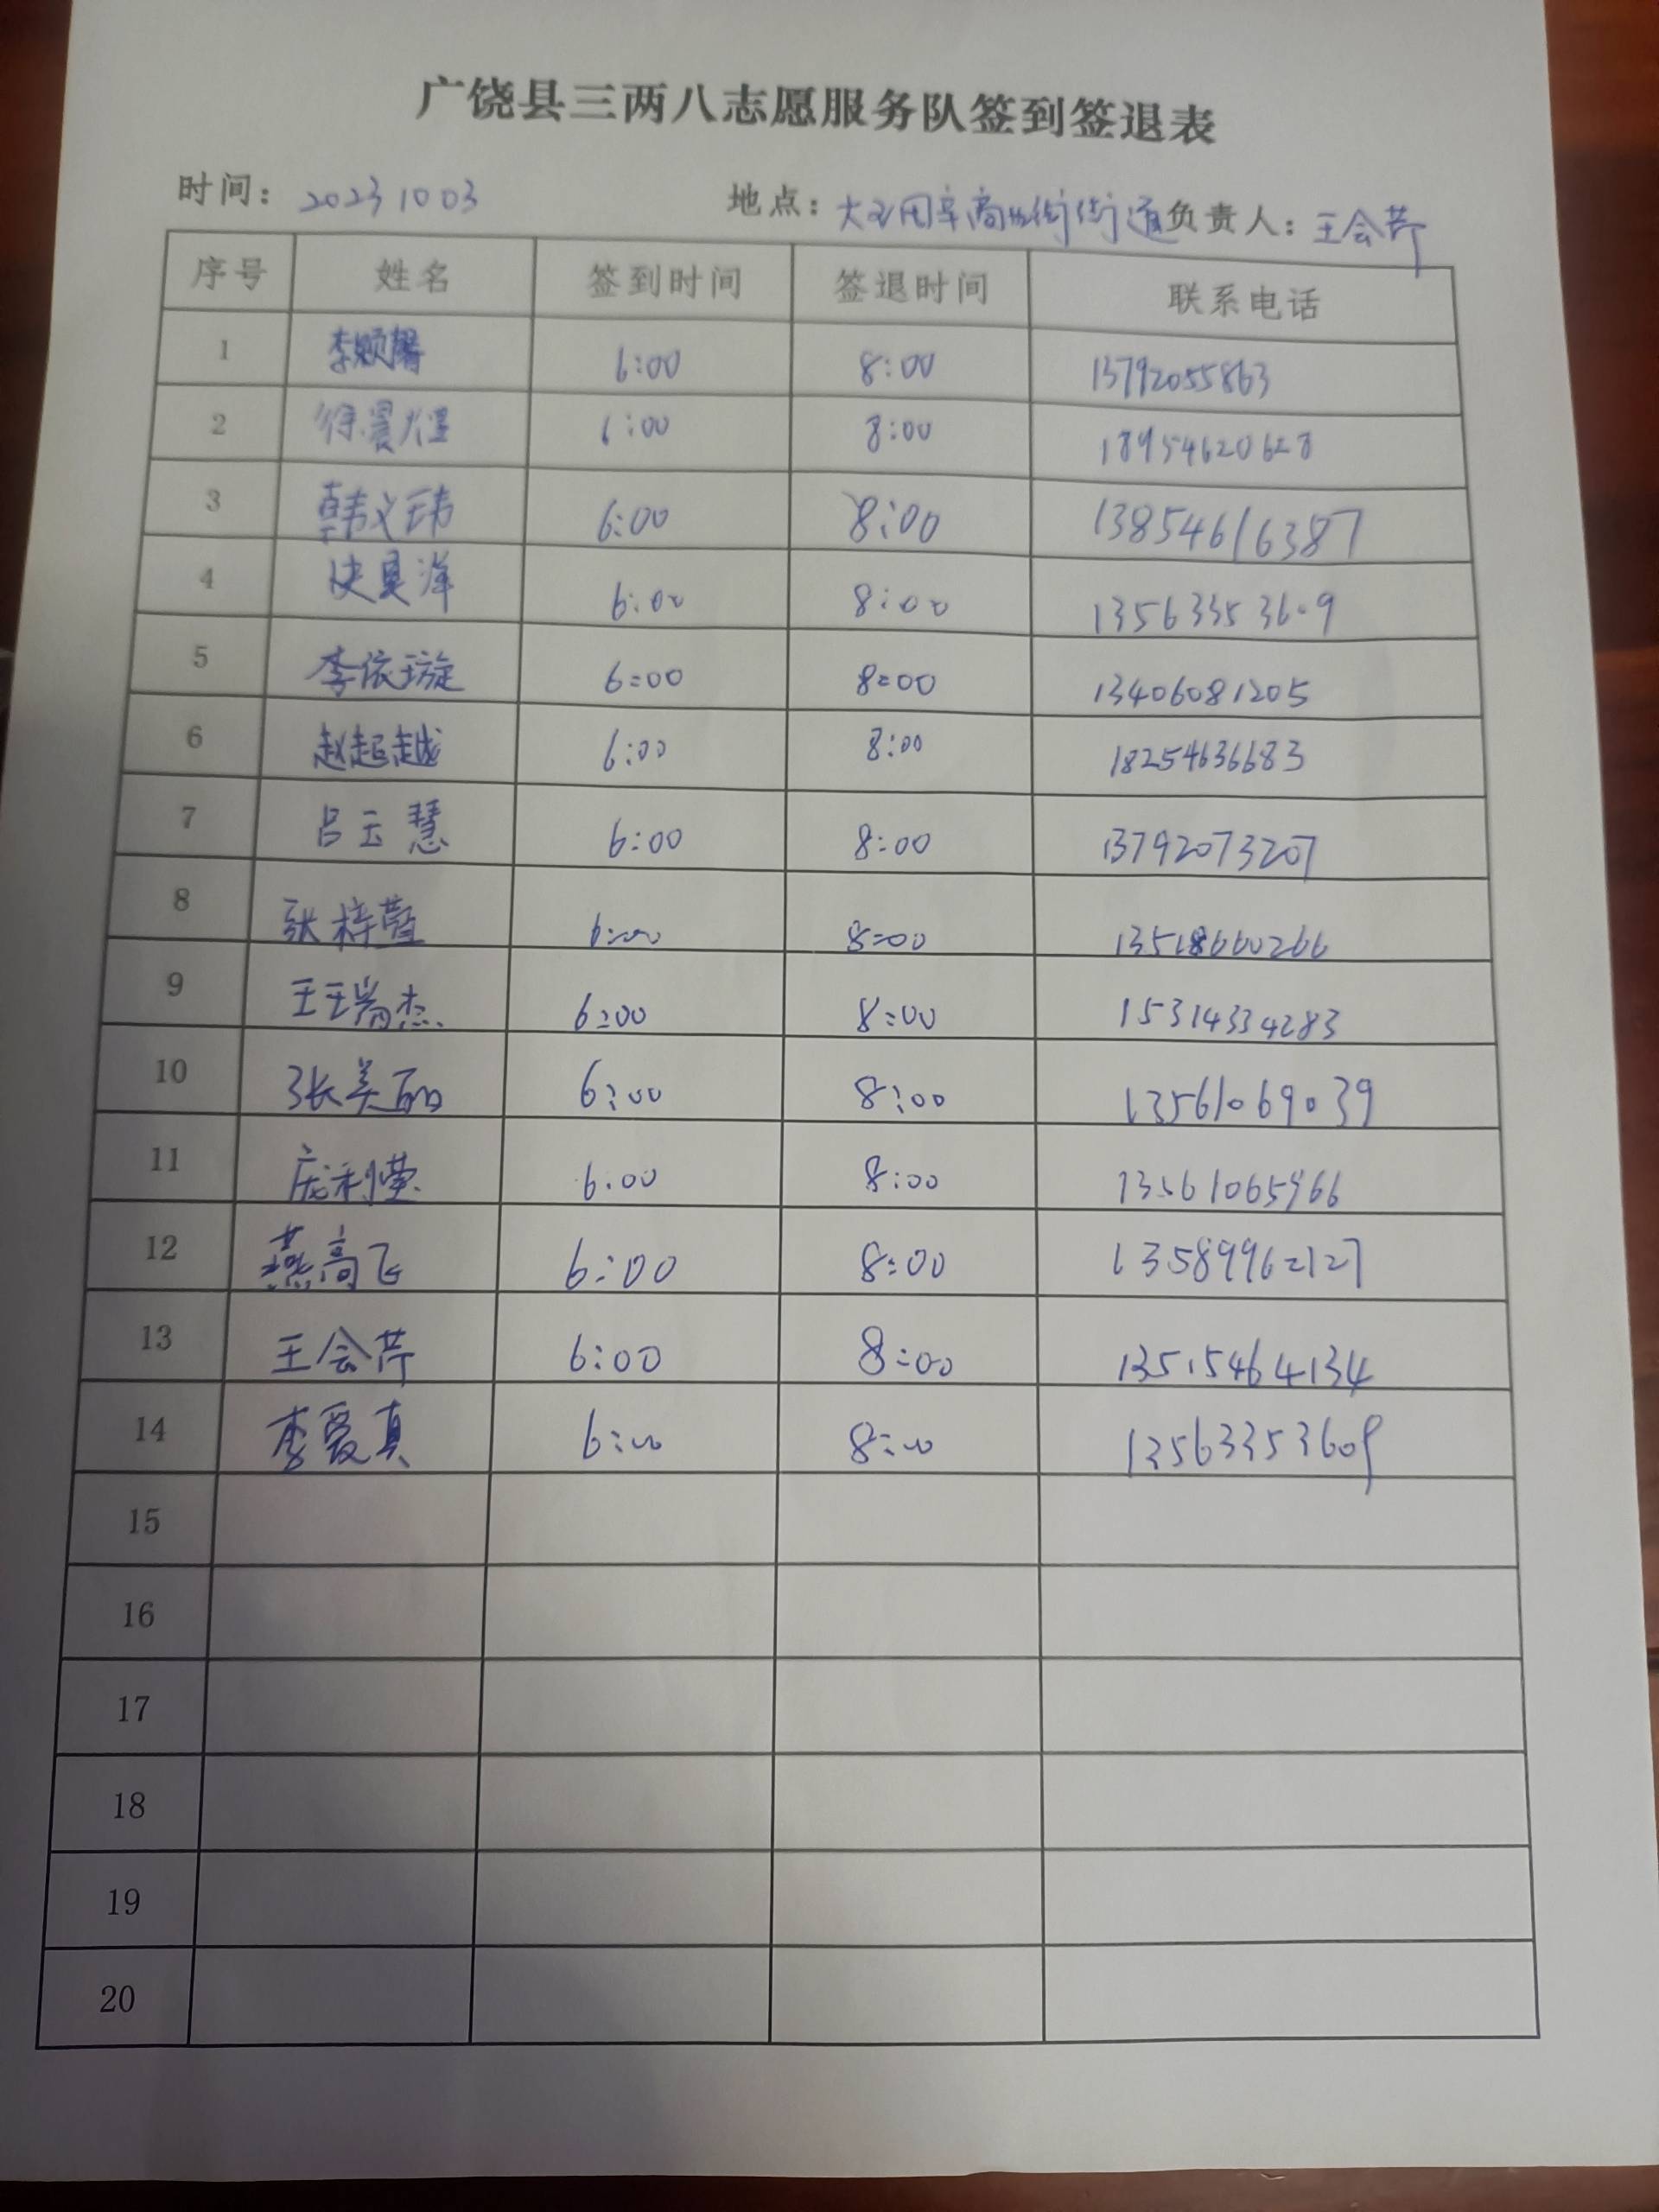 广饶县三两八志愿服务队签到签退表
时间: 20231003 地点: 大王周辛商业街街道 负责人: 王会芹
序号 姓名 签到时间 签退时间 联系电话
1 李顺馨 6:00 8:00 13792055863
2 徐晨煊 6:00 8:00 18954620628
3 韩义玮 6:00 8:00 13854616387
4 史昊洋 6:00 8:00 13563353609
5 李依璇 6:00 8:00 13406081205
6 赵超越 6:00 8:00 18254636683
7 吕云慧 6:00 8:00 13792073207
8 张梓萱 6:00 8:00 13518660266
9 王瑞杰 6:00 8:00 15314334283
10 张美丽 6:00 8:00 13561069039
11 庞利荣 6:00 8:00 13561065966
12 燕高飞 6:00 8:00 13589962127
13 王会芹 6:00 8:00 13515464134
14 李爱真 6:00 8:00 13563353609
15
16
17
18
19
20